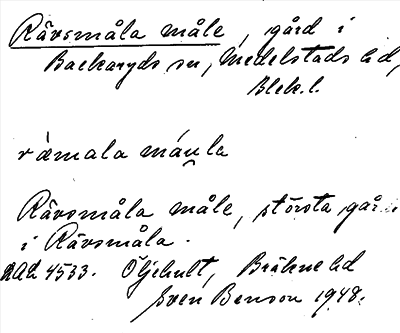 Rävsmåla måle, gård i
Backaryds sn, Medelstads hd,
Blek. l.
rämala mául̯a
Rävsmåla måle, största går
i Rävsmåla.
4533. Öljehult, Bräkne hd
Sven Benson 1948.